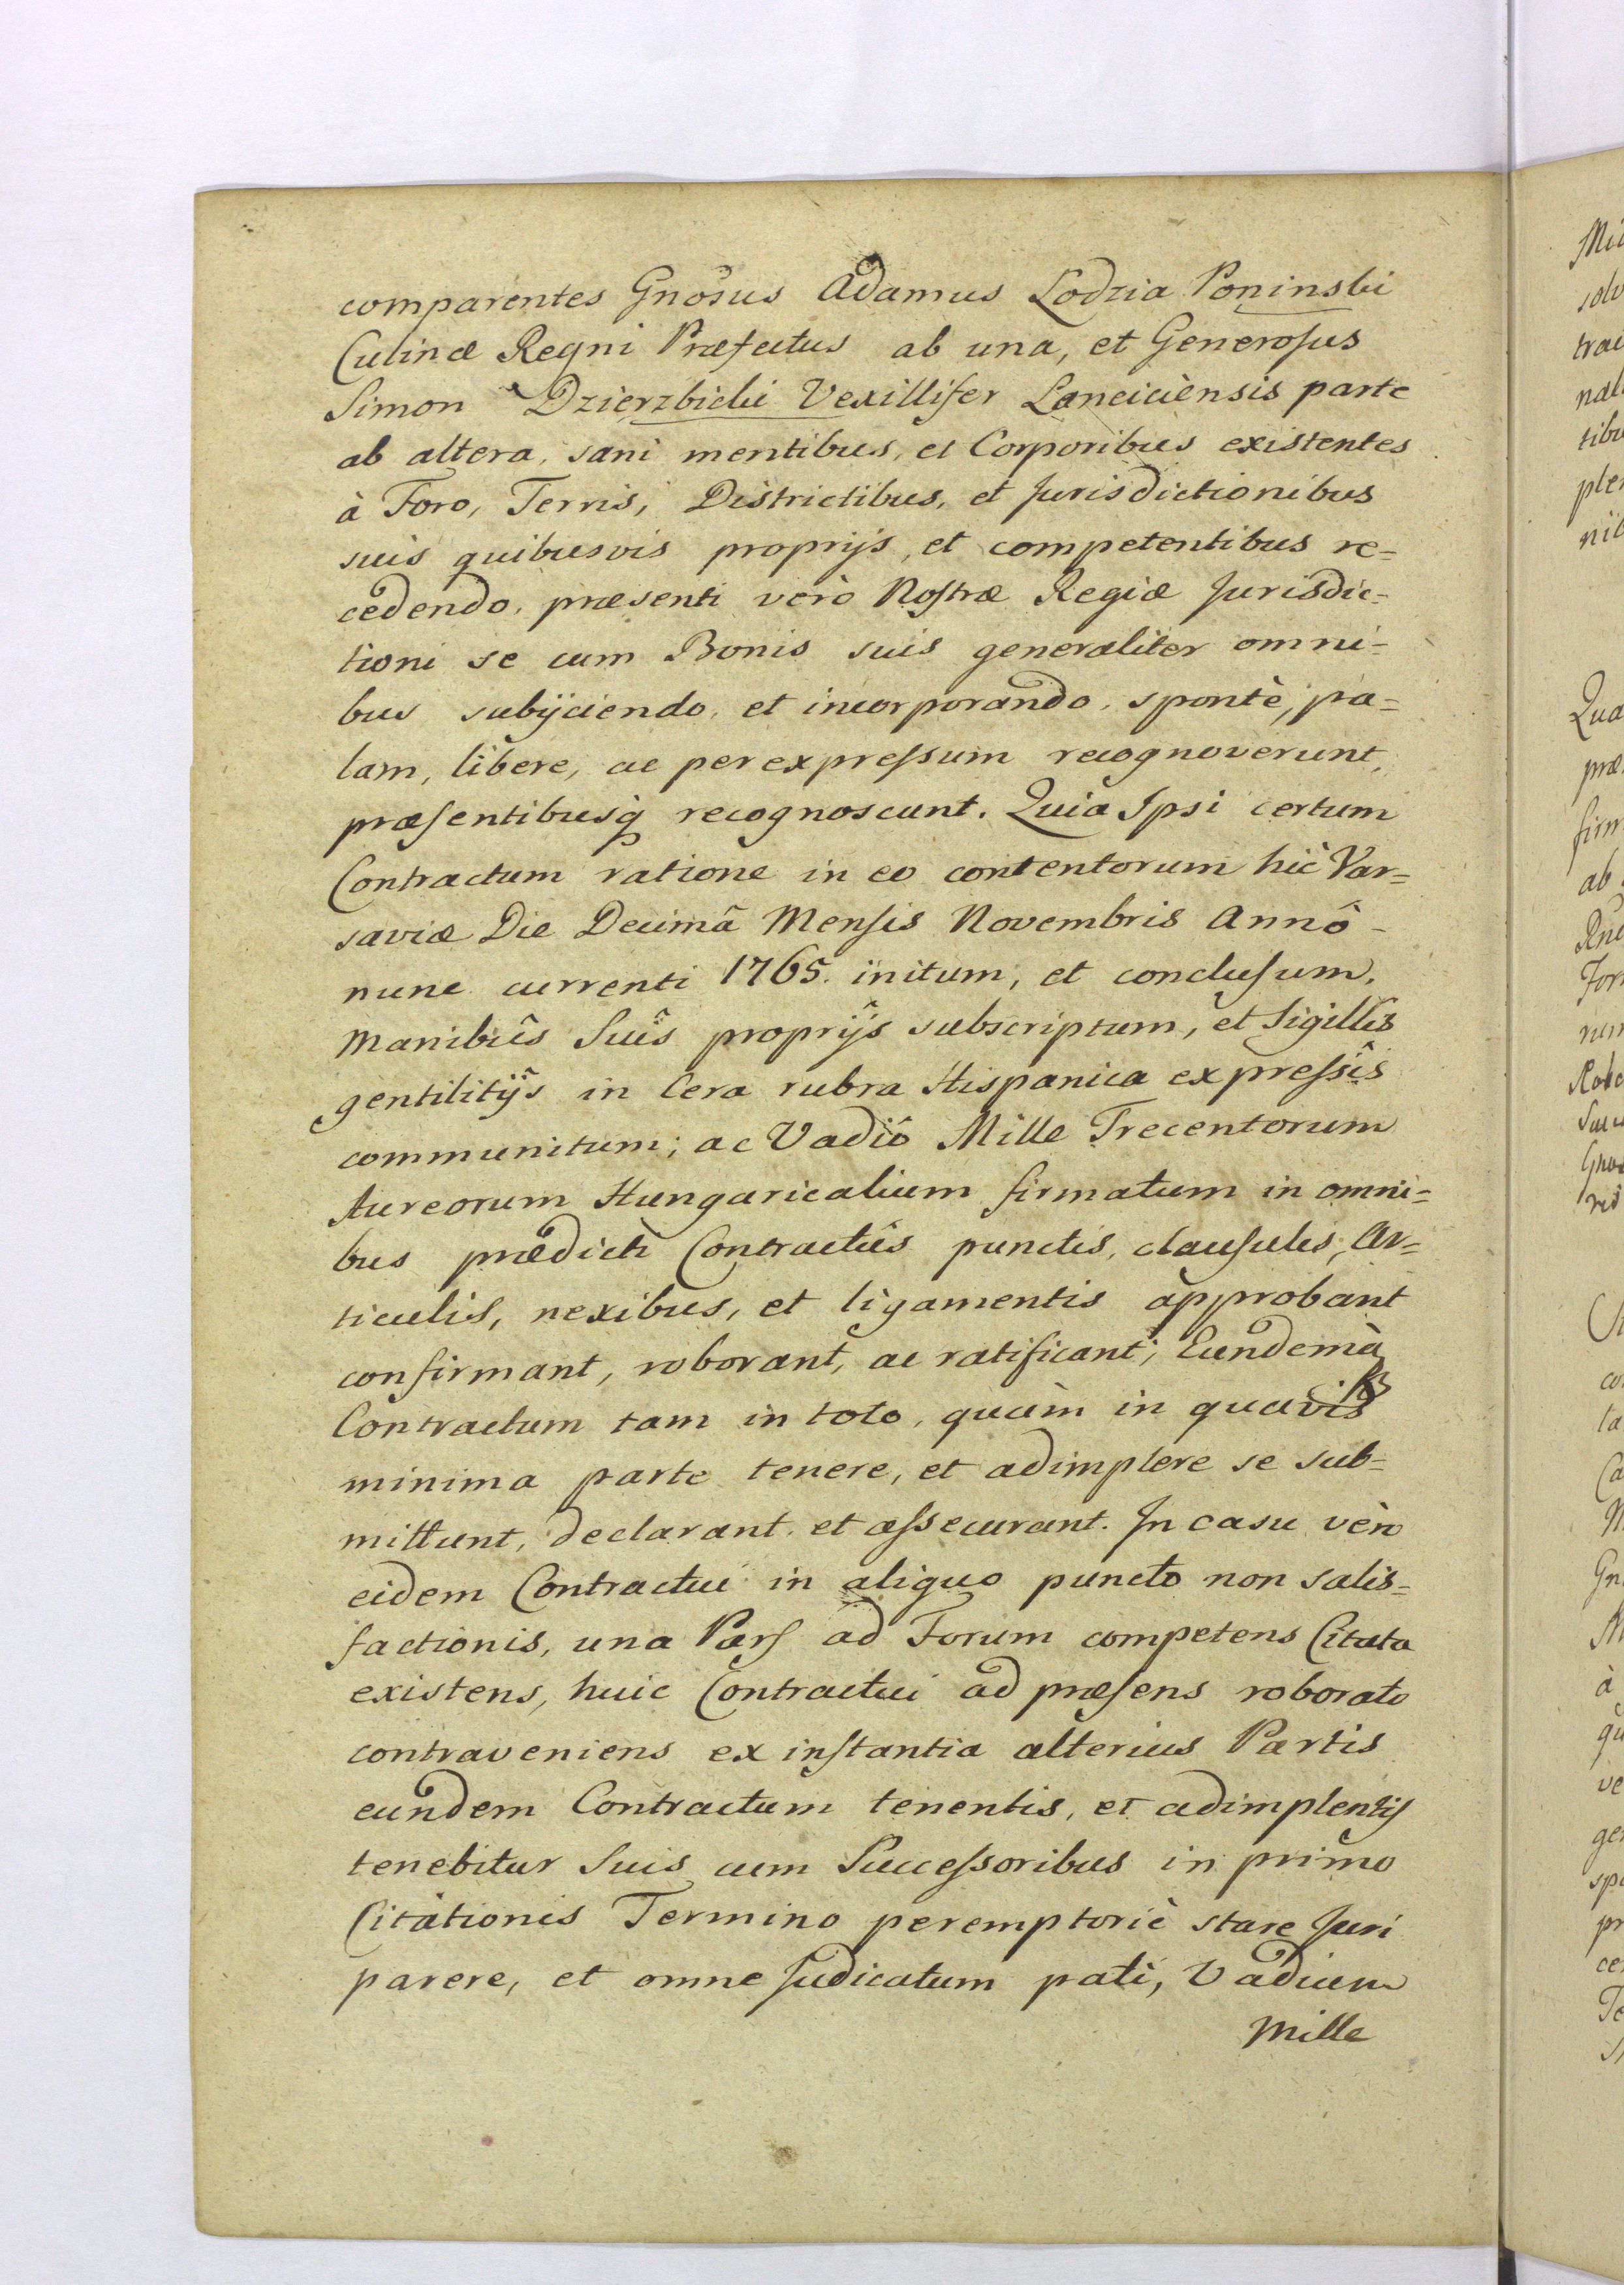 comparentes Gnosus Adamus Lodzia Poninski
Culinæ Regni Præfectus ab una, et Generosus
Simon Dzierzbicki Vexillifer Lanciciensis parte
ab altera, sani mentibus, et Corporibus existentes
à Foro, Terris, Districtibus, et Jurisdictionibus
suis quibusvis proprijs, et competentibus re=
cedendo, præsenti verò Nostræ Regiæ Jurisdic=
tioni se cum Bonis suis generaliter omni=
bus subijciendo, et incorporando, spontè, pa=
lam, libere, ac per expressum recognoverunt,
præsentibusq recognoscunt. Quia Ipsi certum
Contractum ratione in eo contentorum hic Var=
saviæ Die Decimâ Mensis Novembris Annô
nunc currenti 1765. initum, et conclusum,
Manibûs Suîs proprîjs subscriptum, et Sigillis
gentilitîjs in Cera rubra Hispanica expressîs
communitum; ac Vadiô Mille Trecentorum
Aureorum Hungaricalium firmatum in omni=
bus prædicti Contractûs punctis, clausulis, Ar=
ticulis, nexibus, et ligamentis approbant
confirmant, roborant, ac ratificant; Eundemq
Contractum tam in toto, quàm in quavis
minima parte tenere, et adimplere se sub=
mittunt, declarant, et assecurant. In casu verò
eidem Contractui in aliquo puncto non satis=
factionis, una Pars ad Forum competens Citata
existens, huic Contractui ad præsens roborato
contraveniens ex instantia alterius Partis
eundem Contractum tenentis, et adimplentis
tenebitur Suis cum Successoribus in primo
Citationis Termino peremptoriè stare Juri
parere, et omne Judicatum pati, Vadium
Mille